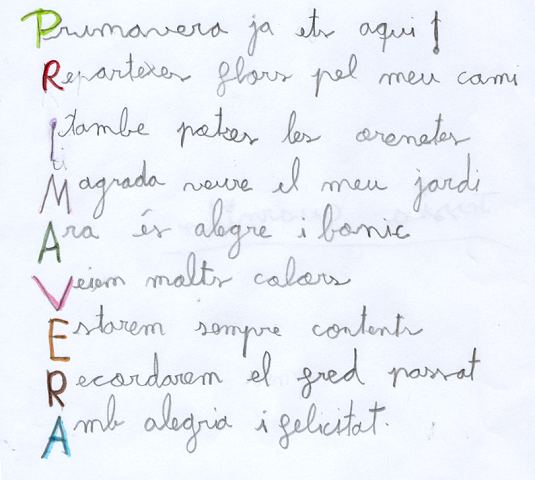 Primavera ja ets aqui!
Repartexes flors pel meu cami
I tambe portes les orenetes
M agrada veure el meu jardi
Ara és alegre i bonic
Veiem molts colors
Estarem sempre contents
Recordarem el fred passat
Amb alegria i felicitat.